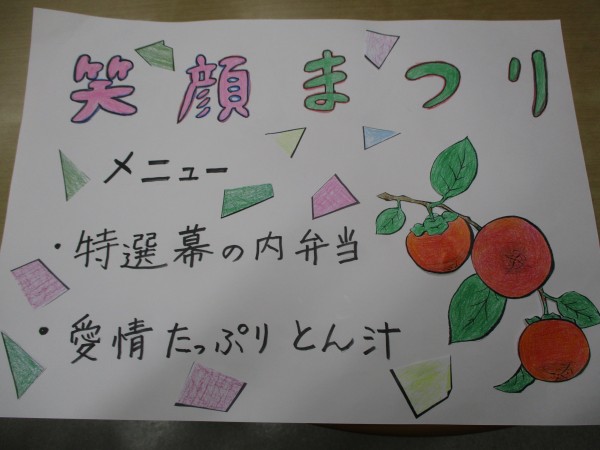 笑顔まつり
メニュー
・特選幕の内弁当
・愛情たっぷりとん汁